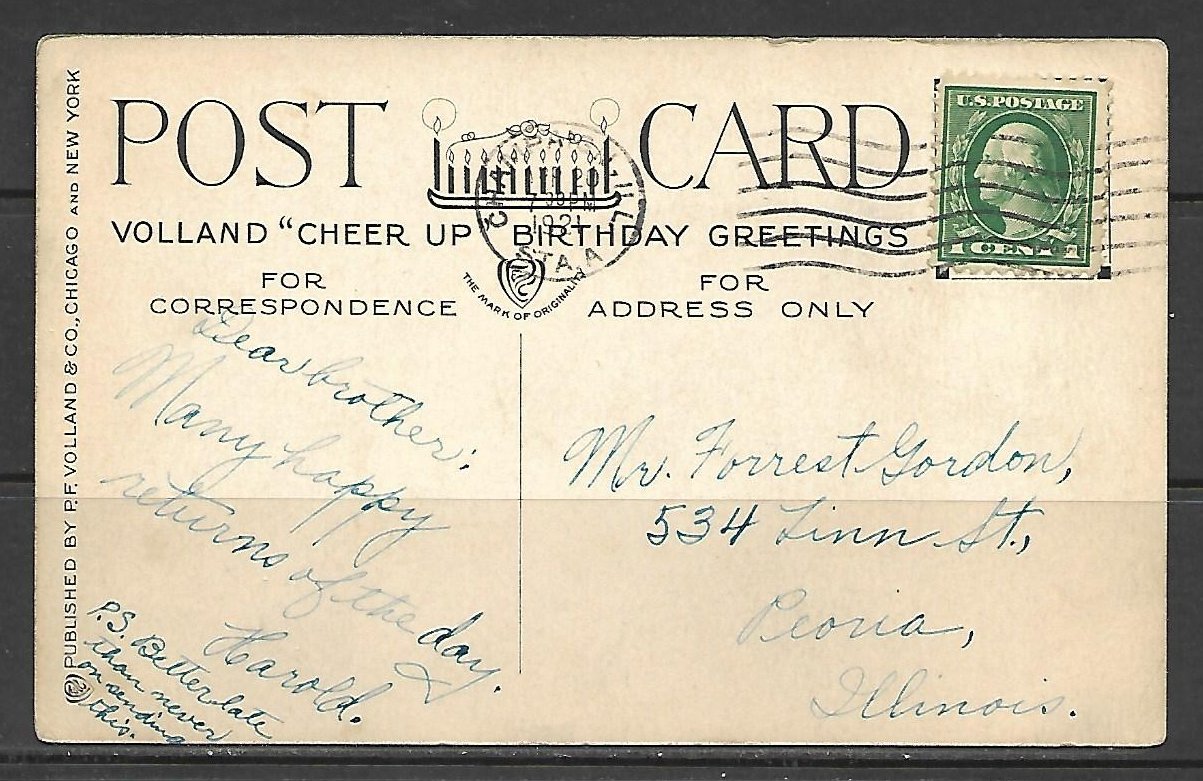 POST CARD
VOLLAND "CHEER UP" BIRTHDAY GREETINGS
FOR
CORRESPONDENCE
THE MARK OF ORIGINALITY
FOR
ADDRESS ONLY
U.S. POSTAGE
1 CENT 1
1921
PUBLISHED BY P.F. VOLLAND & CO., CHICAGO AND NEW YORK
Dear brother:
Many happy
returns of the day.
Harold.
P.S. Better late
than never
on sending
this.
Mr. Forrest Gordon,
534 Linn St.,
Peoria,
Illinois.